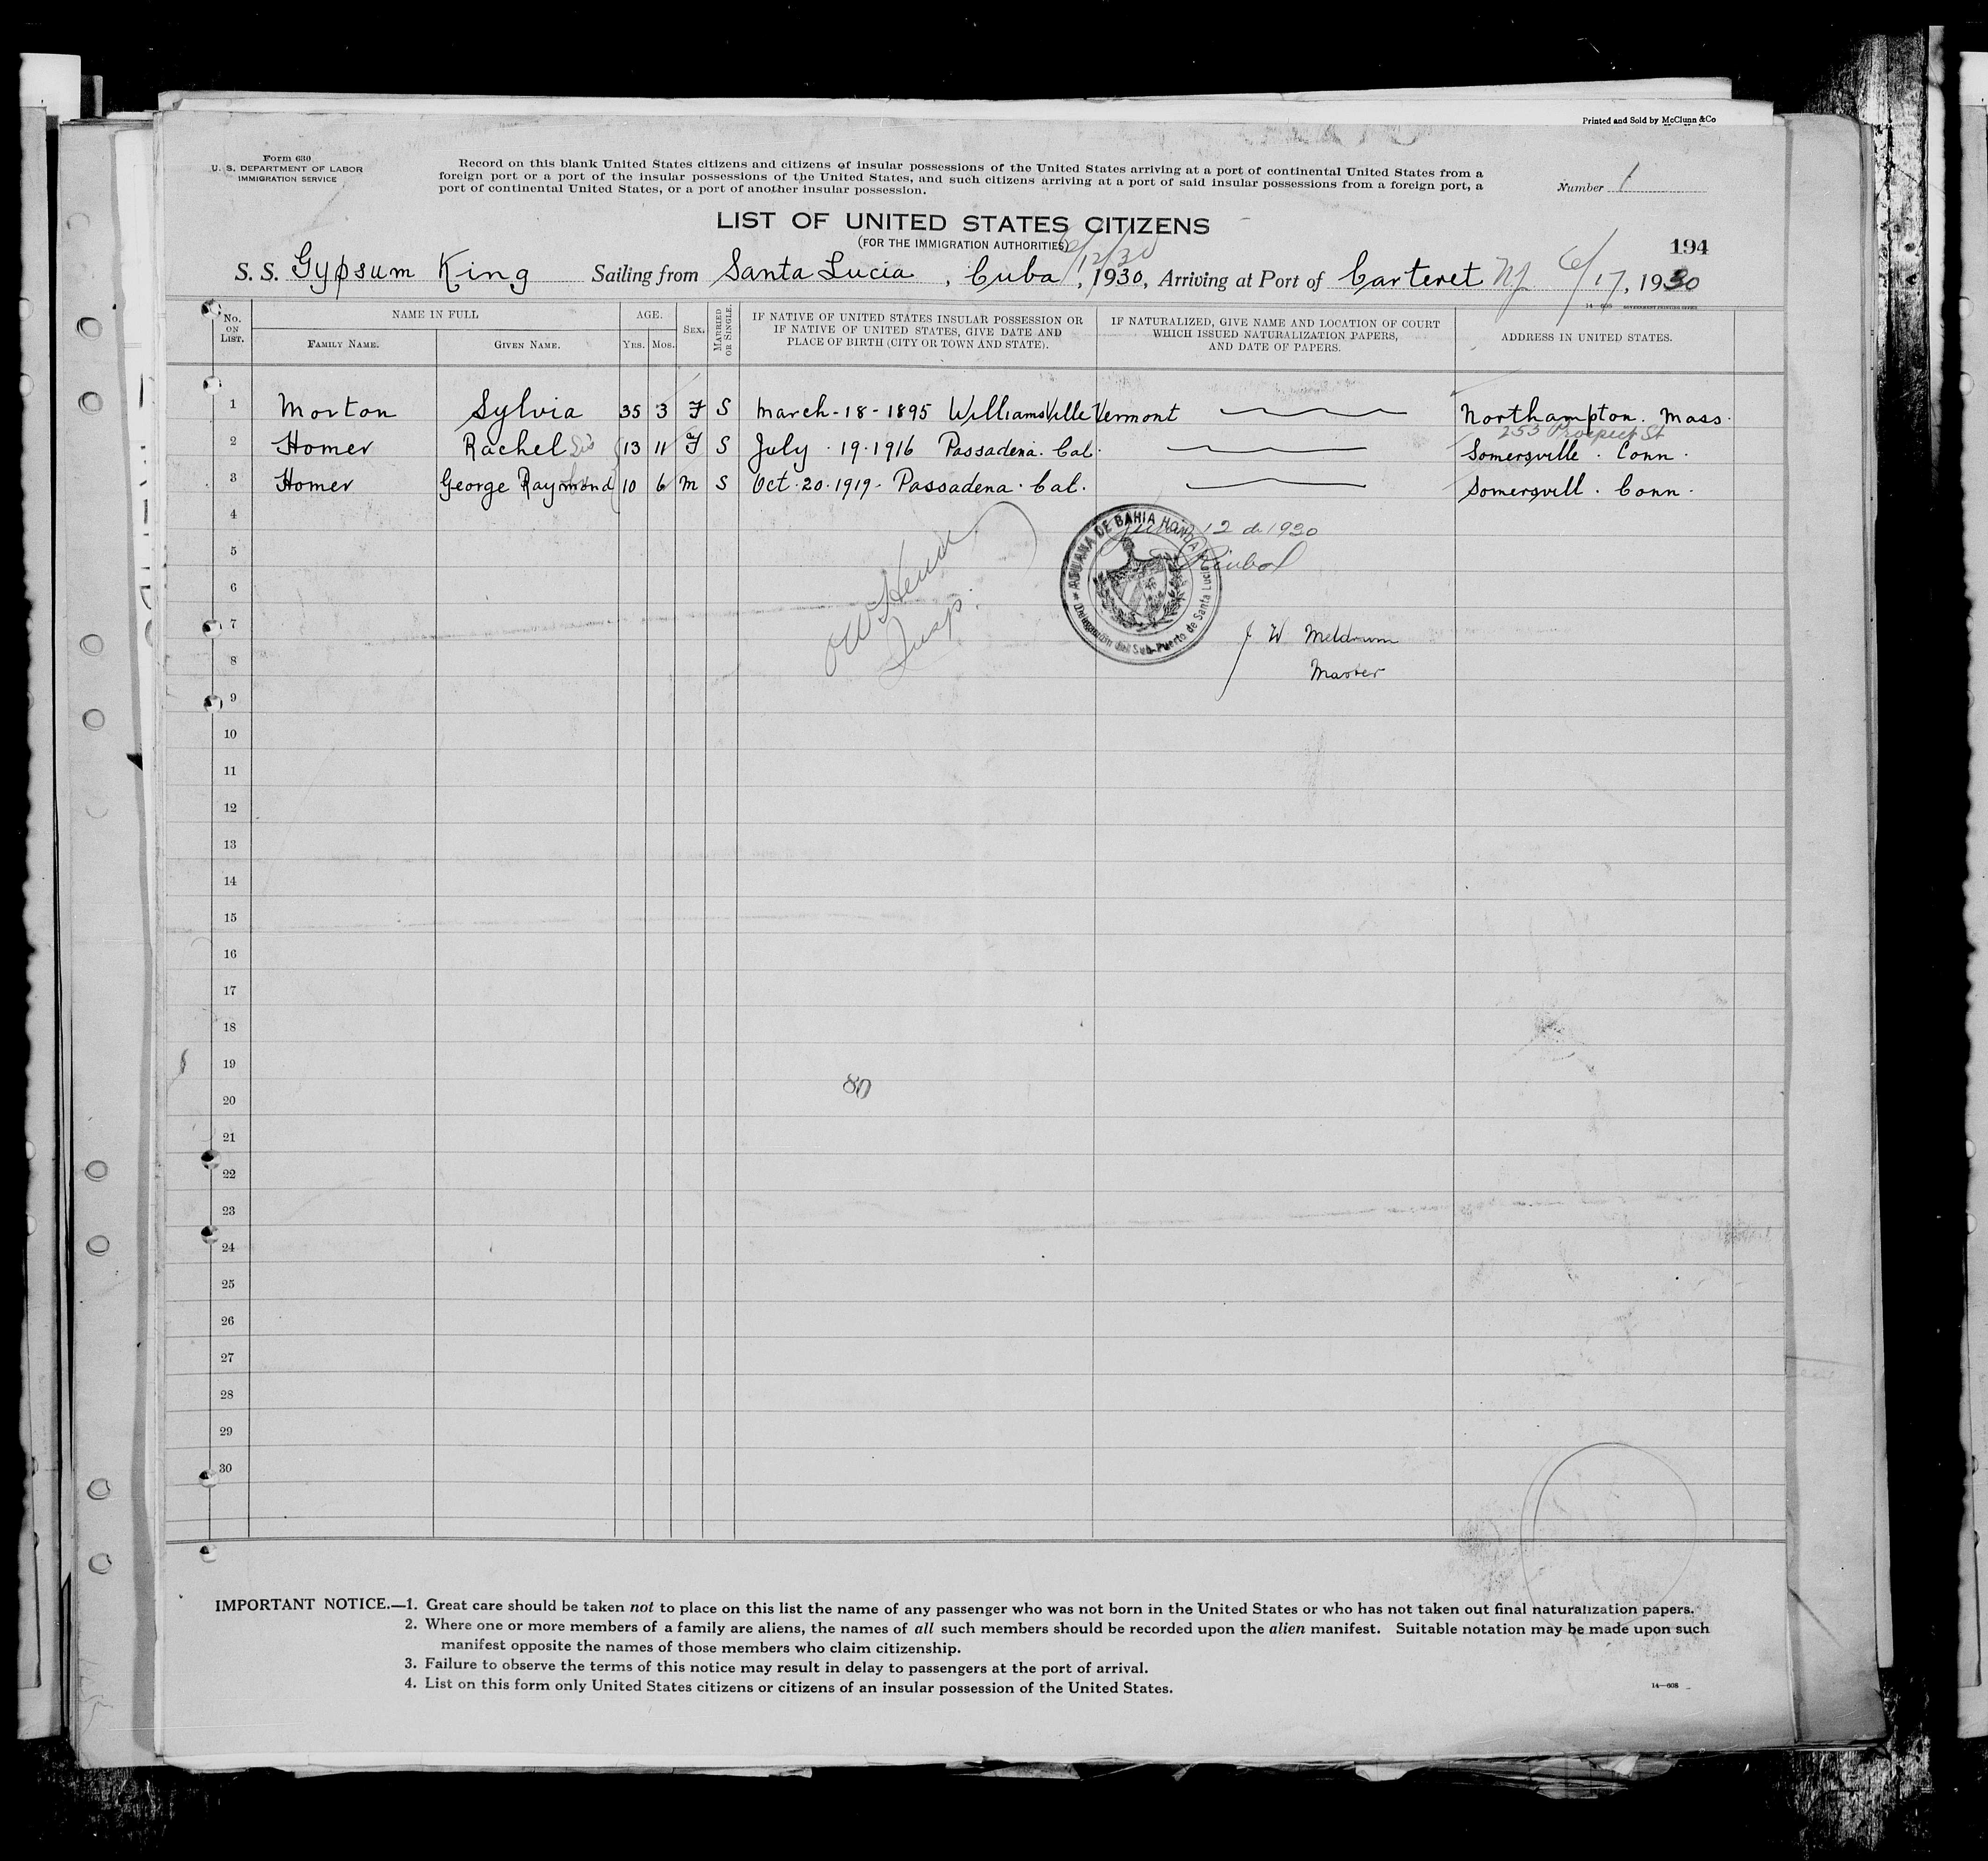 Printed and Sold by McClunn &Co
Form 630
U. S. DEPARTMENT OF LABOR
IMMIGRATION SERVICE
Record on this blank United States citizens and citizens of insular possessions of the United States arriving at a port of continental United States from a
foreign port or a port of the insular possessions of the United States, and such citizens arriving at a port of said insular possessions from a foreign port, a
port of continental United States, or a port of another insular possession.
Number 1
LIST OF UNITED STATES CITIZENS
(FOR THE IMMIGRATION AUTHORITIES)
194
6/12/30
S. S. Gypsum King Sailing from Santa Lucia, Cuba, 1930, Arriving at Port of Carteret NJ 6/17, 1930
No. ON LIST.
NAME IN FULL
FAMILY NAME.
GIVEN NAME.
AGE.
YRS.
MOS.
SEX.
MARRIED OR SINGLE.
IF NATIVE OF UNITED STATES INSULAR POSSESSION OR
IF NATIVE OF UNITED STATES, GIVE DATE AND
PLACE OF BIRTH (CITY OR TOWN AND STATE).
IF NATURALIZED, GIVE NAME AND LOCATION OF COURT
WHICH ISSUED NATURALIZATION PAPERS,
AND DATE OF PAPERS.
ADDRESS IN UNITED STATES.
1 Morton Sylvia 35 3 F S March-18-1895 Williamsville Vermont Northampton. Mass.
253 Prospect St
2 Homer Rachel Sis 13 11 F S July. 19. 1916 Passadena. Cal. Somersville. Conn.
3 Homer George Raymond 10 6 M S Oct. 20. 1919. Passadena. Cal. Somersvill. Conn.
4
ADUANA DE BAHIA HONDA
Delegación del Sub-Puerto de Santa Lucia
12 de 1930
5
6
Insp.
7
J W Meldrum
8
Master
9
10
11
12
13
14
15
16
17
18
19
80
20
21
22
23
24
25
26
27
28
29
30
IMPORTANT NOTICE.—1. Great care should be taken not to place on this list the name of any passenger who was not born in the United States or who has not taken out final naturalization papers.
2. Where one or more members of a family are aliens, the names of all such members should be recorded upon the alien manifest. Suitable notation may be made upon such
manifest opposite the names of those members who claim citizenship.
3. Failure to observe the terms of this notice may result in delay to passengers at the port of arrival.
4. List on this form only United States citizens or citizens of an insular possession of the United States.
14—608